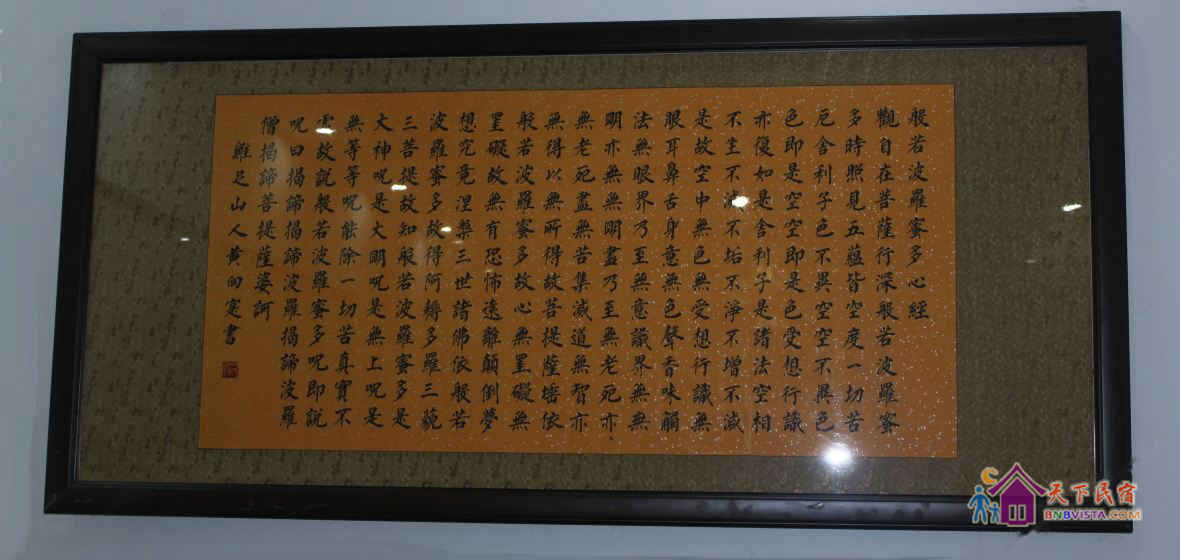 般若波羅蜜多心經
觀自在菩薩行深般若波羅蜜
多時照見五蘊皆空度一切苦
厄舍利子色不異空空不異色
色即是空空即是色受想行識
亦復如是舍利子是諸法空相
不生不滅不垢不淨不增不減
是故空中無色無受想行識無
眼耳鼻舌身意無色聲香味觸
法無眼界乃至無意識界無無
明亦無無明盡乃至無老死亦
無老死盡無苦集滅道無智亦
無得以無所得故菩提薩埵依
般若波羅蜜多故心無罣礙無
罣礙故無有恐怖遠離顛倒夢
想究竟涅槃三世諸佛依般若
波羅蜜多故得阿耨多羅三藐
三菩提故知般若波羅蜜多是
大神呪是大明呪是無上呪是
無等等呪能除一切苦真實不
虛故說般若波羅蜜多呪即說
呪曰揭諦揭諦波羅揭諦波羅
僧揭諦菩提薩婆訶
雞足山人黄書
天下民宿
BNBVISTA.COM